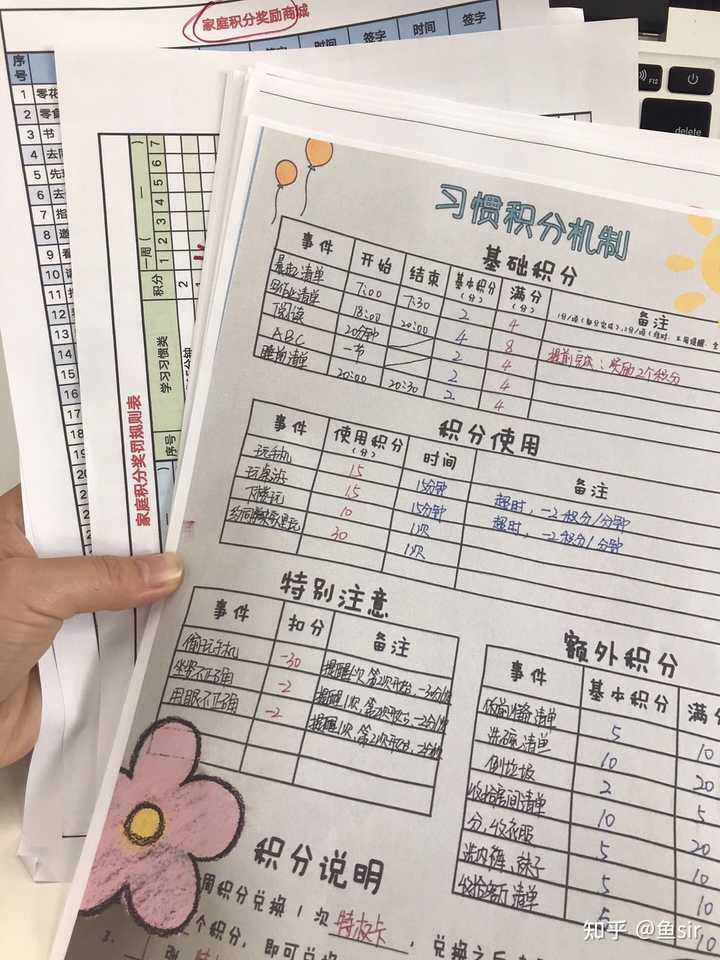 家庭积分奖励商城
序号 时间 签字 时间 签字
1 零花
2 零食
3 书
4 去
5
6 去
7 指
8 邀
9 看
10
11
12
13
14
15
16
17
18
19
家庭积分奖罚规则表
序号 学习习惯奖 积分 一周( 一 )
1 2 3 4 5 6 7
F12
delete
习惯积分机制
基础积分
事件 开始 结束 基本积分(分) 满分(分) 备注
晨起清单 7:00 7:30 2 4
作业清单 18:00 20:00 4 8 提前完成:奖励2个积分
阅读 20分钟 2 4
ABC 一节 2 4
睡前清单 20:00 20:30 2 4
积分使用
事件 使用积分(分) 时间 备注
玩手机 15 15分钟 超时,-2积分/分钟
玩桌游 15 15分钟 超时,-2积分/分钟
下楼玩 10 1次
30 1次
特别注意
事件 扣分 备注
偷玩手机 -30 提醒1次,第2次开始,-30分/次
坐姿不正确 -2 提醒1次,第2次开始,-2分/次
用眼不正确 -2 提醒1次,第2次开始,-2分/次
额外积分
事件 基本积分 满分
清单 5 10
洗碗清单 10 20
倒垃圾 2 5
收拾房间清单 10 20
分、收衣服 5 10
洗内裤、袜子 5 10
清单 5 10
积分说明
周积分兑换1次特权卡
3. 个积分,即可兑换 ,兑换之后
知乎 @鱼sir